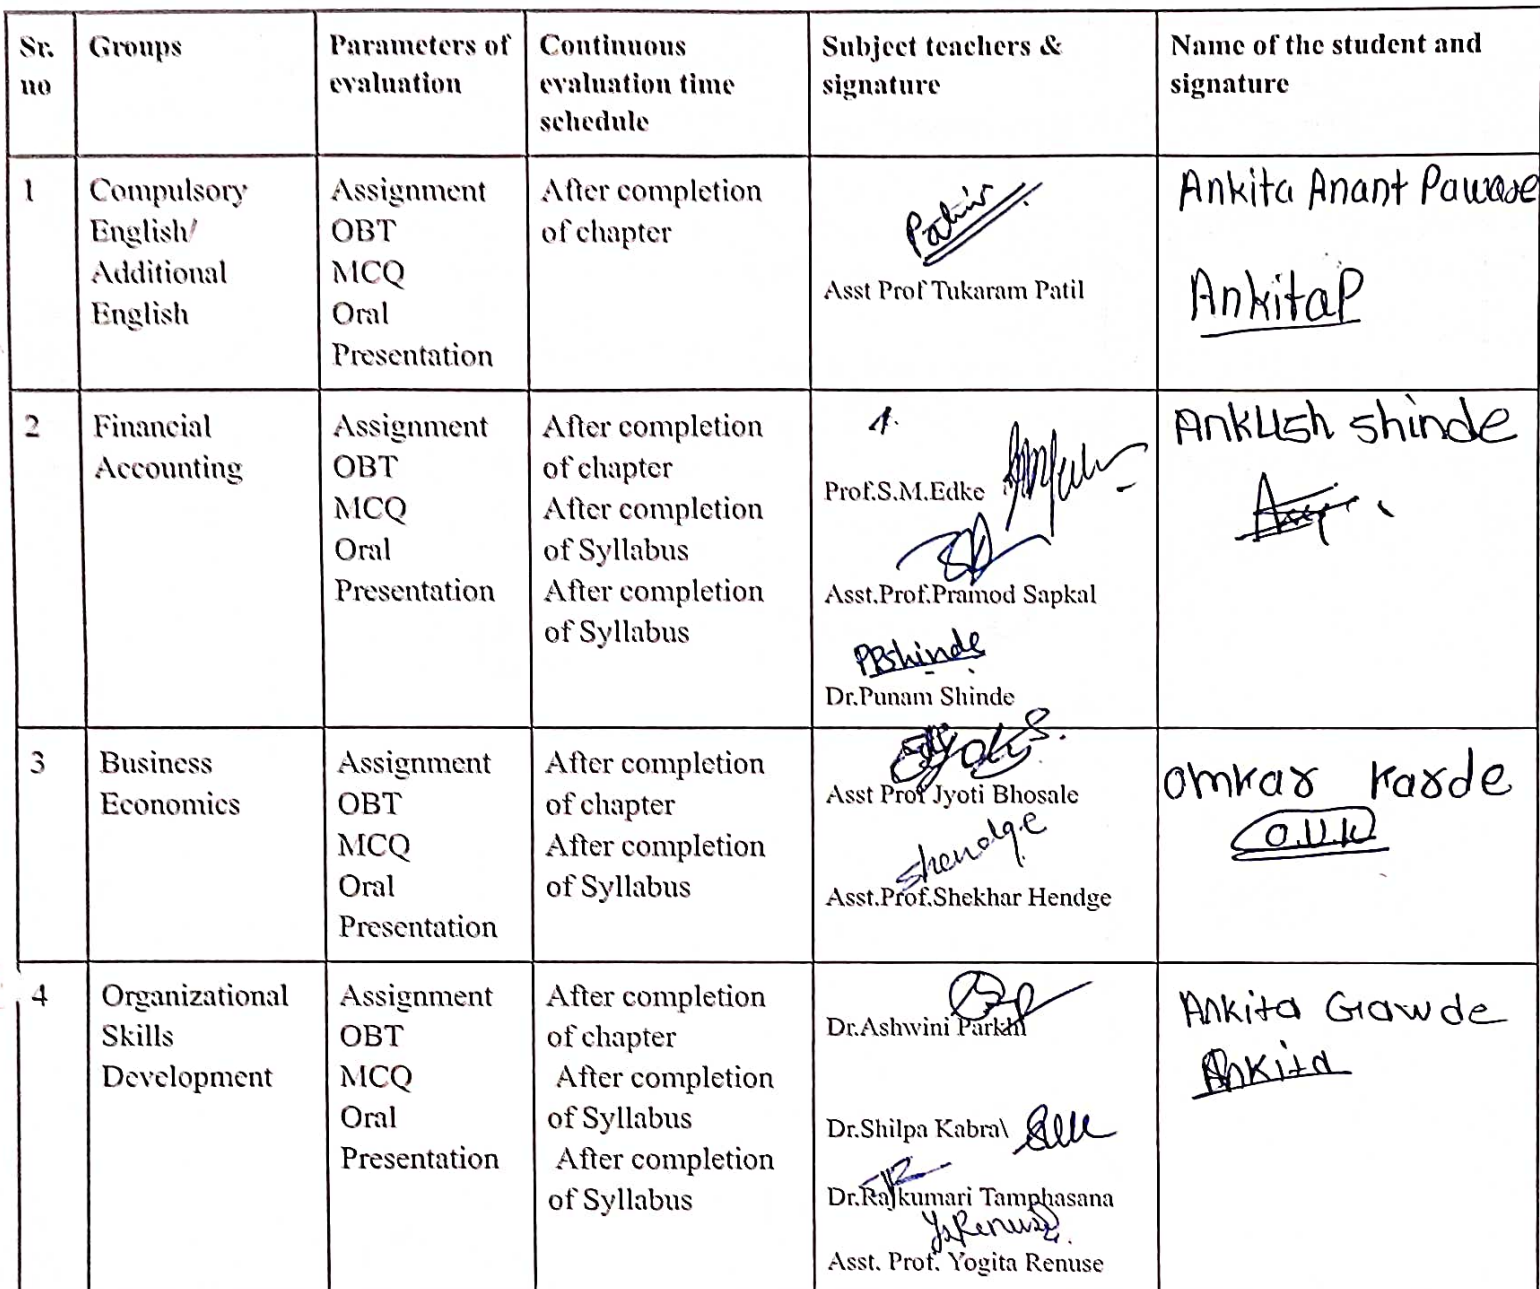 Sr. no
Groups
Parameters of evaluation
Continuous evaluation time schedule
Subject teachers & signature
Name of the student and signature
1
Compulsory
English/
Additional
English
Assignment
OBT
MCQ
Oral
Presentation
After completion
of chapter
Asst Prof Tukaram Patil
Ankita Anant Pawase
AnkitaP
2
Financial
Accounting
Assignment
OBT
MCQ
Oral
Presentation
After completion
of chapter
After completion
of Syllabus
After completion
of Syllabus
1.
Prof.S.M.Edke
Asst.Prof.Pramod Sapkal
PBshinde
Dr.Punam Shinde
Ankush shinde
3
Business
Economics
Assignment
OBT
MCQ
Oral
Presentation
After completion
of chapter
After completion
of Syllabus
Asst Prof Jyoti Bhosale
shendge
Asst.Prof.Shekhar Hendge
omkar Karde
4
Organizational
Skills
Development
Assignment
OBT
MCQ
Oral
Presentation
After completion
of chapter
After completion
of Syllabus
After completion
of Syllabus
Dr.Ashwini Parkhi
Dr.Shilpa Kabra\
Dr.Rajkumari Tamphasana
Y.Renuse
Asst. Prof. Yogita Renuse
Ankita Gawde
Ankita